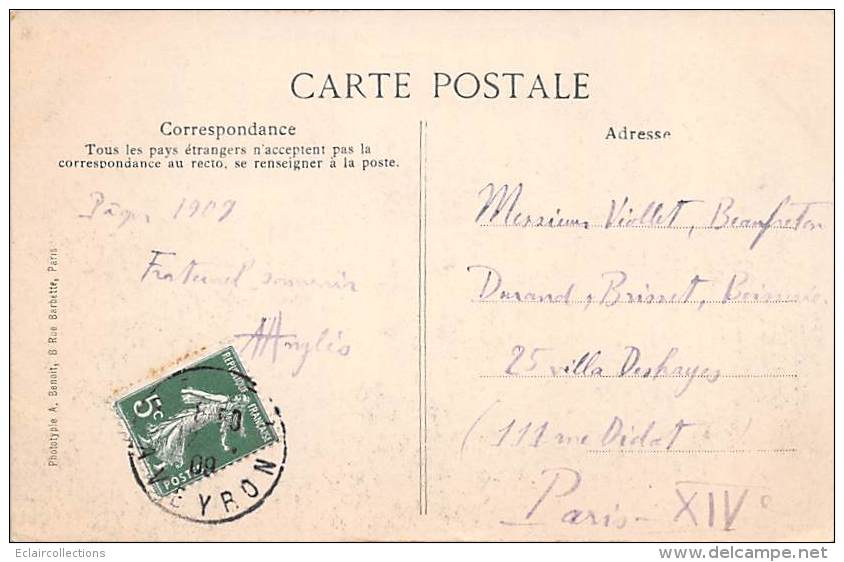 CARTE POSTALE
Correspondance
Tous les pays étrangers n'acceptent pas la
correspondance au recto, se renseigner à la poste.
Pâques 1909
Fraternel souvenir
Anglès
Adresse
Messieurs Viollet, Beaufreton
Durand, Brisset,
25 villa Deshayes
(111 rue Didot
Paris - XIVe
Phototypie A. Benoit, 8 Rue Barbette, Paris
5c
REPUBLIQUE FRANÇAISE
POSTES
09
AVEYRON
Eclaircollections
delcampe.net